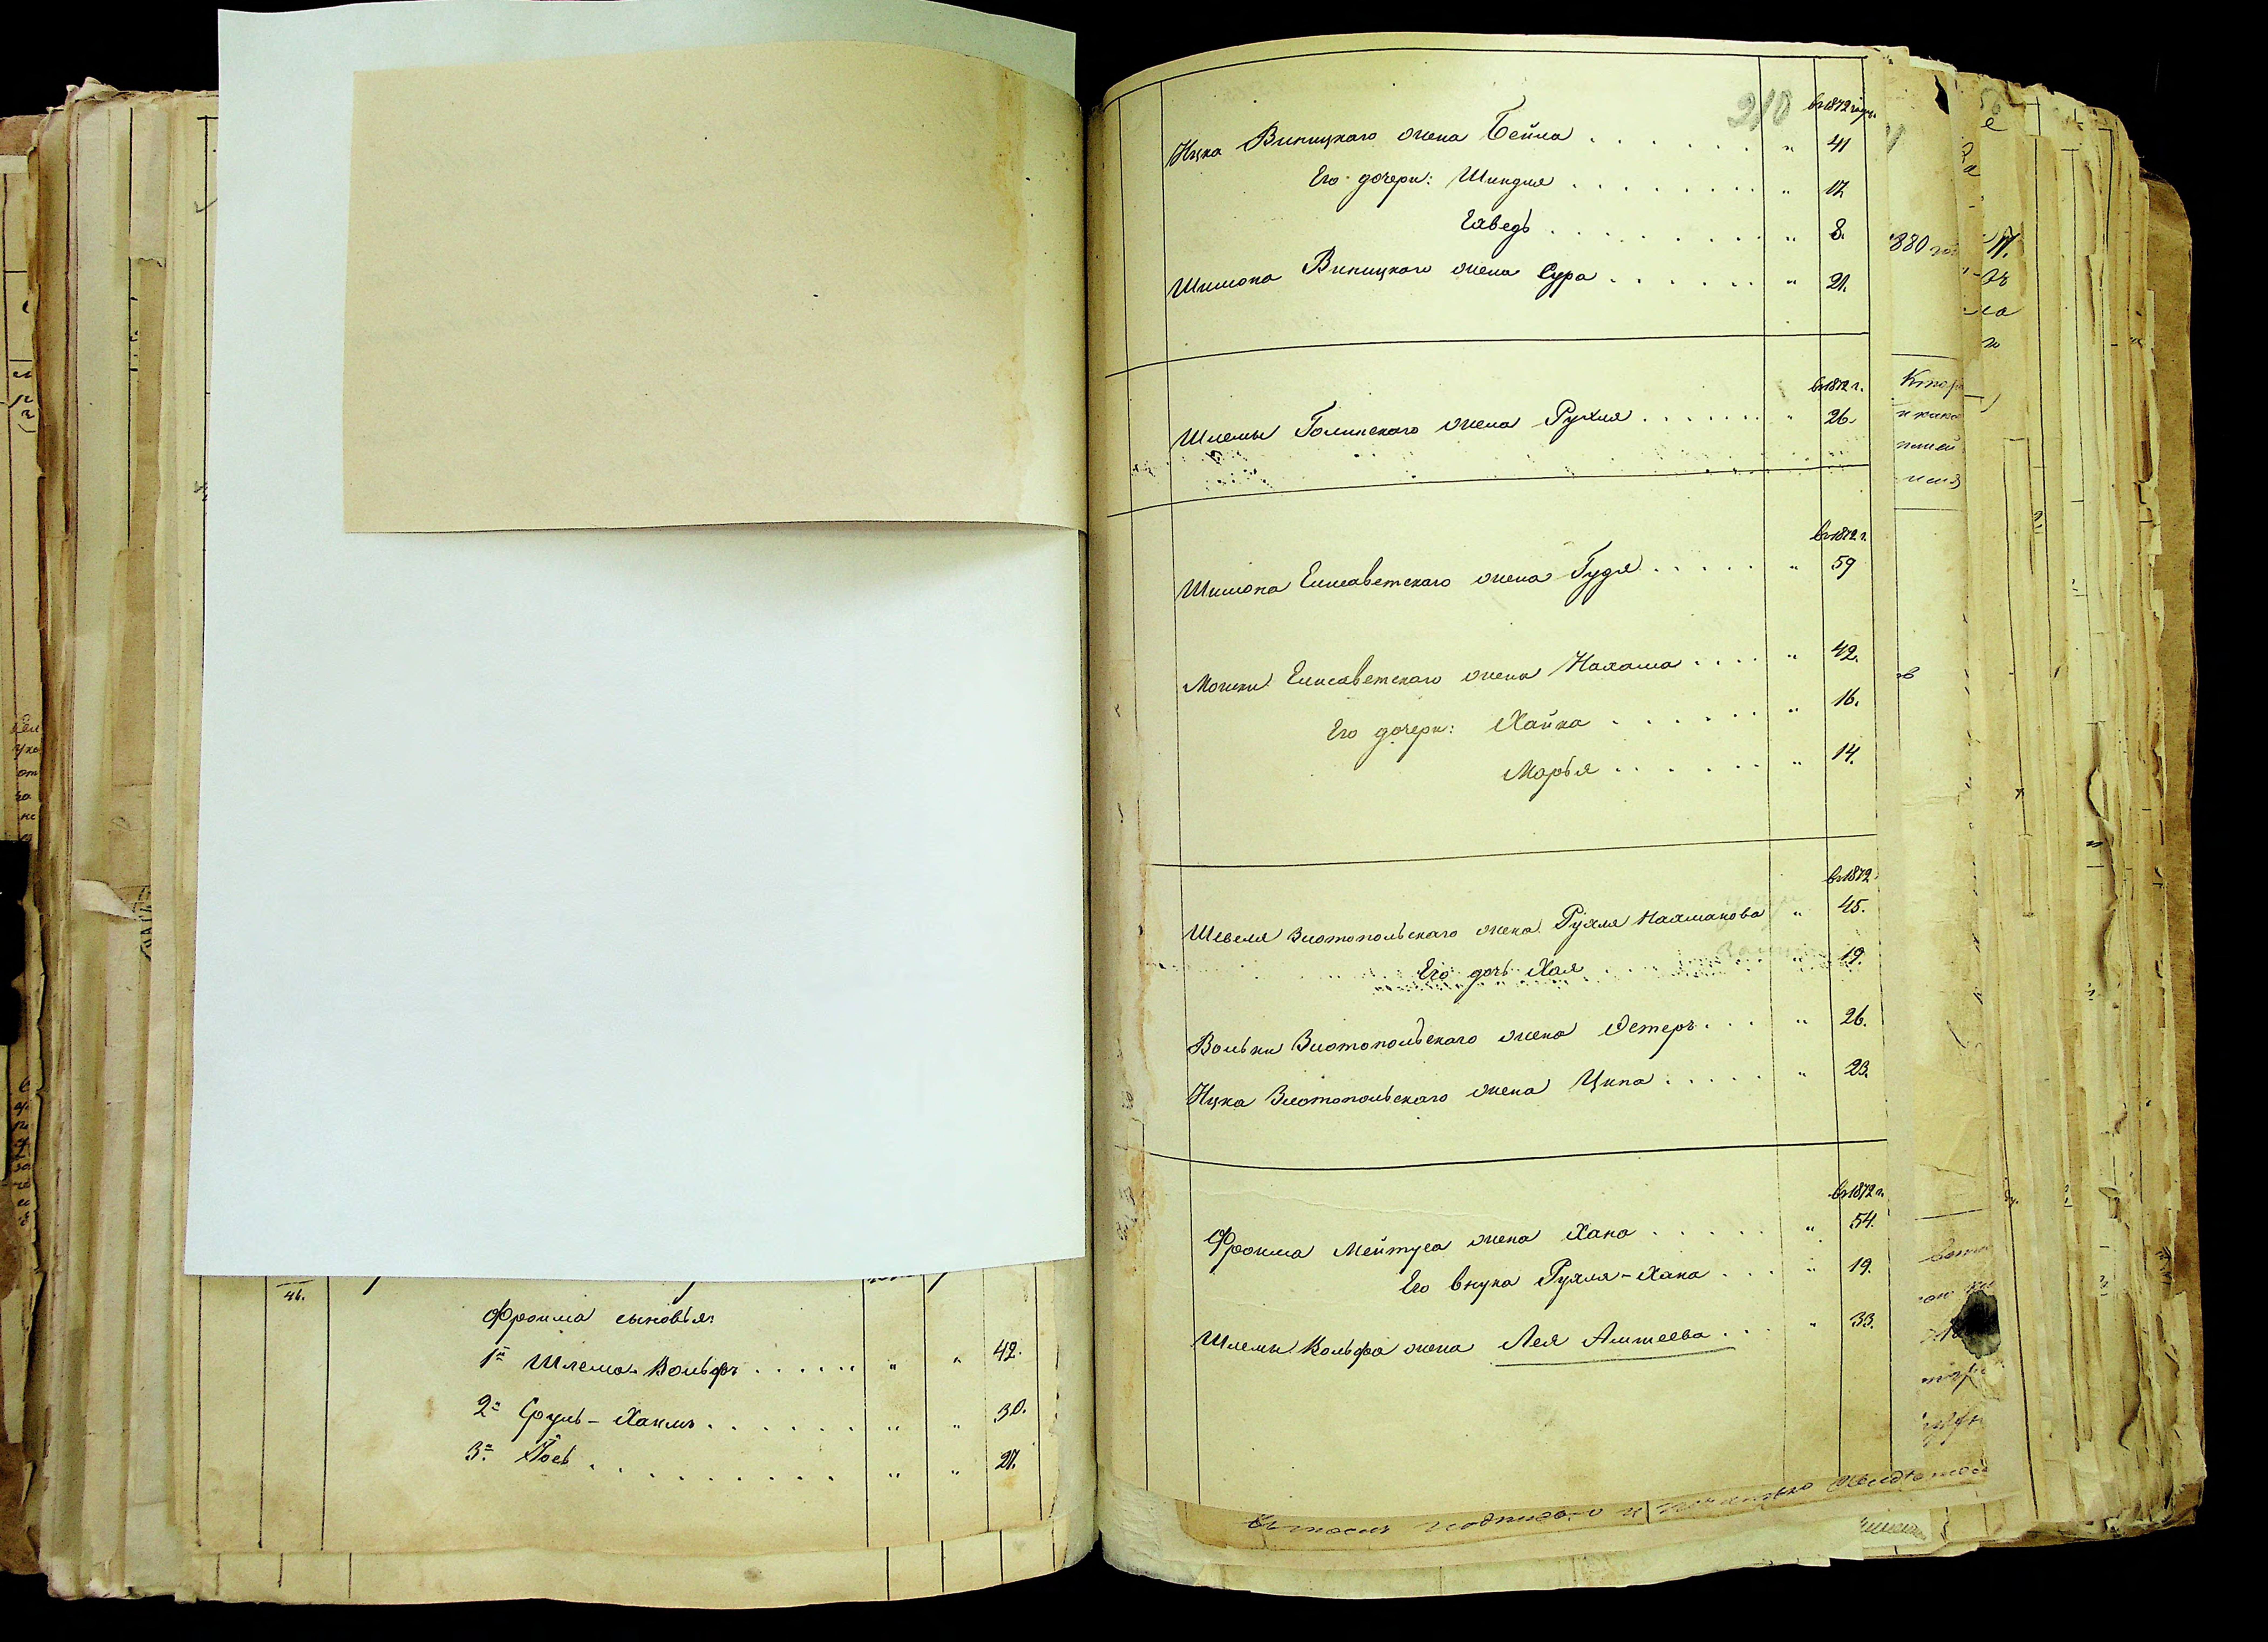 46.
Фроима сыновья:
1й Шлема-Вольфъ . . . . . " " 42.
2й Сруль-Хаимъ . . . . . . " " 30.
3й Іось . . . . . . . . . " " 21.
210
въ 1872 году.
Ицка Виницкаго жена Бейла . . . . . . " 41
Его дочери: Шиндля . . . . . . . . " 12
Ехведъ . . . . . . . . " 8.
Шимона Виницкаго жена Сура . . . . . . " 21.
въ 1872 г.
Шлемы Голинскаго жена Рухля . . . . . . " 26.
въ 1872 г.
Шимона Елисаветскаго жена Гудя . . . . . " 59
Мошки Елисаветскаго жена Нахама . . . . " 42.
Его дочери: Хайка . . . . . . " 16.
Марья . . . . . . " 14.
въ 1872
Шевеля Златопольскаго жена Рухля Нахманова " 45.
Его дочь Хая . . . . . " 19.
Вольки Златопольскаго жена Эстеръ . . . " 26.
Ицка Златопольскаго жена Ципа . . . . . " 23.
въ 1872 г.
Фроима Мейтуса жена Хана . . . . . . " 54.
Его внука Рухля-Хана . . . " 19.
Шлемы Вольфа жена Лея Алтеева . . . " 33.
880